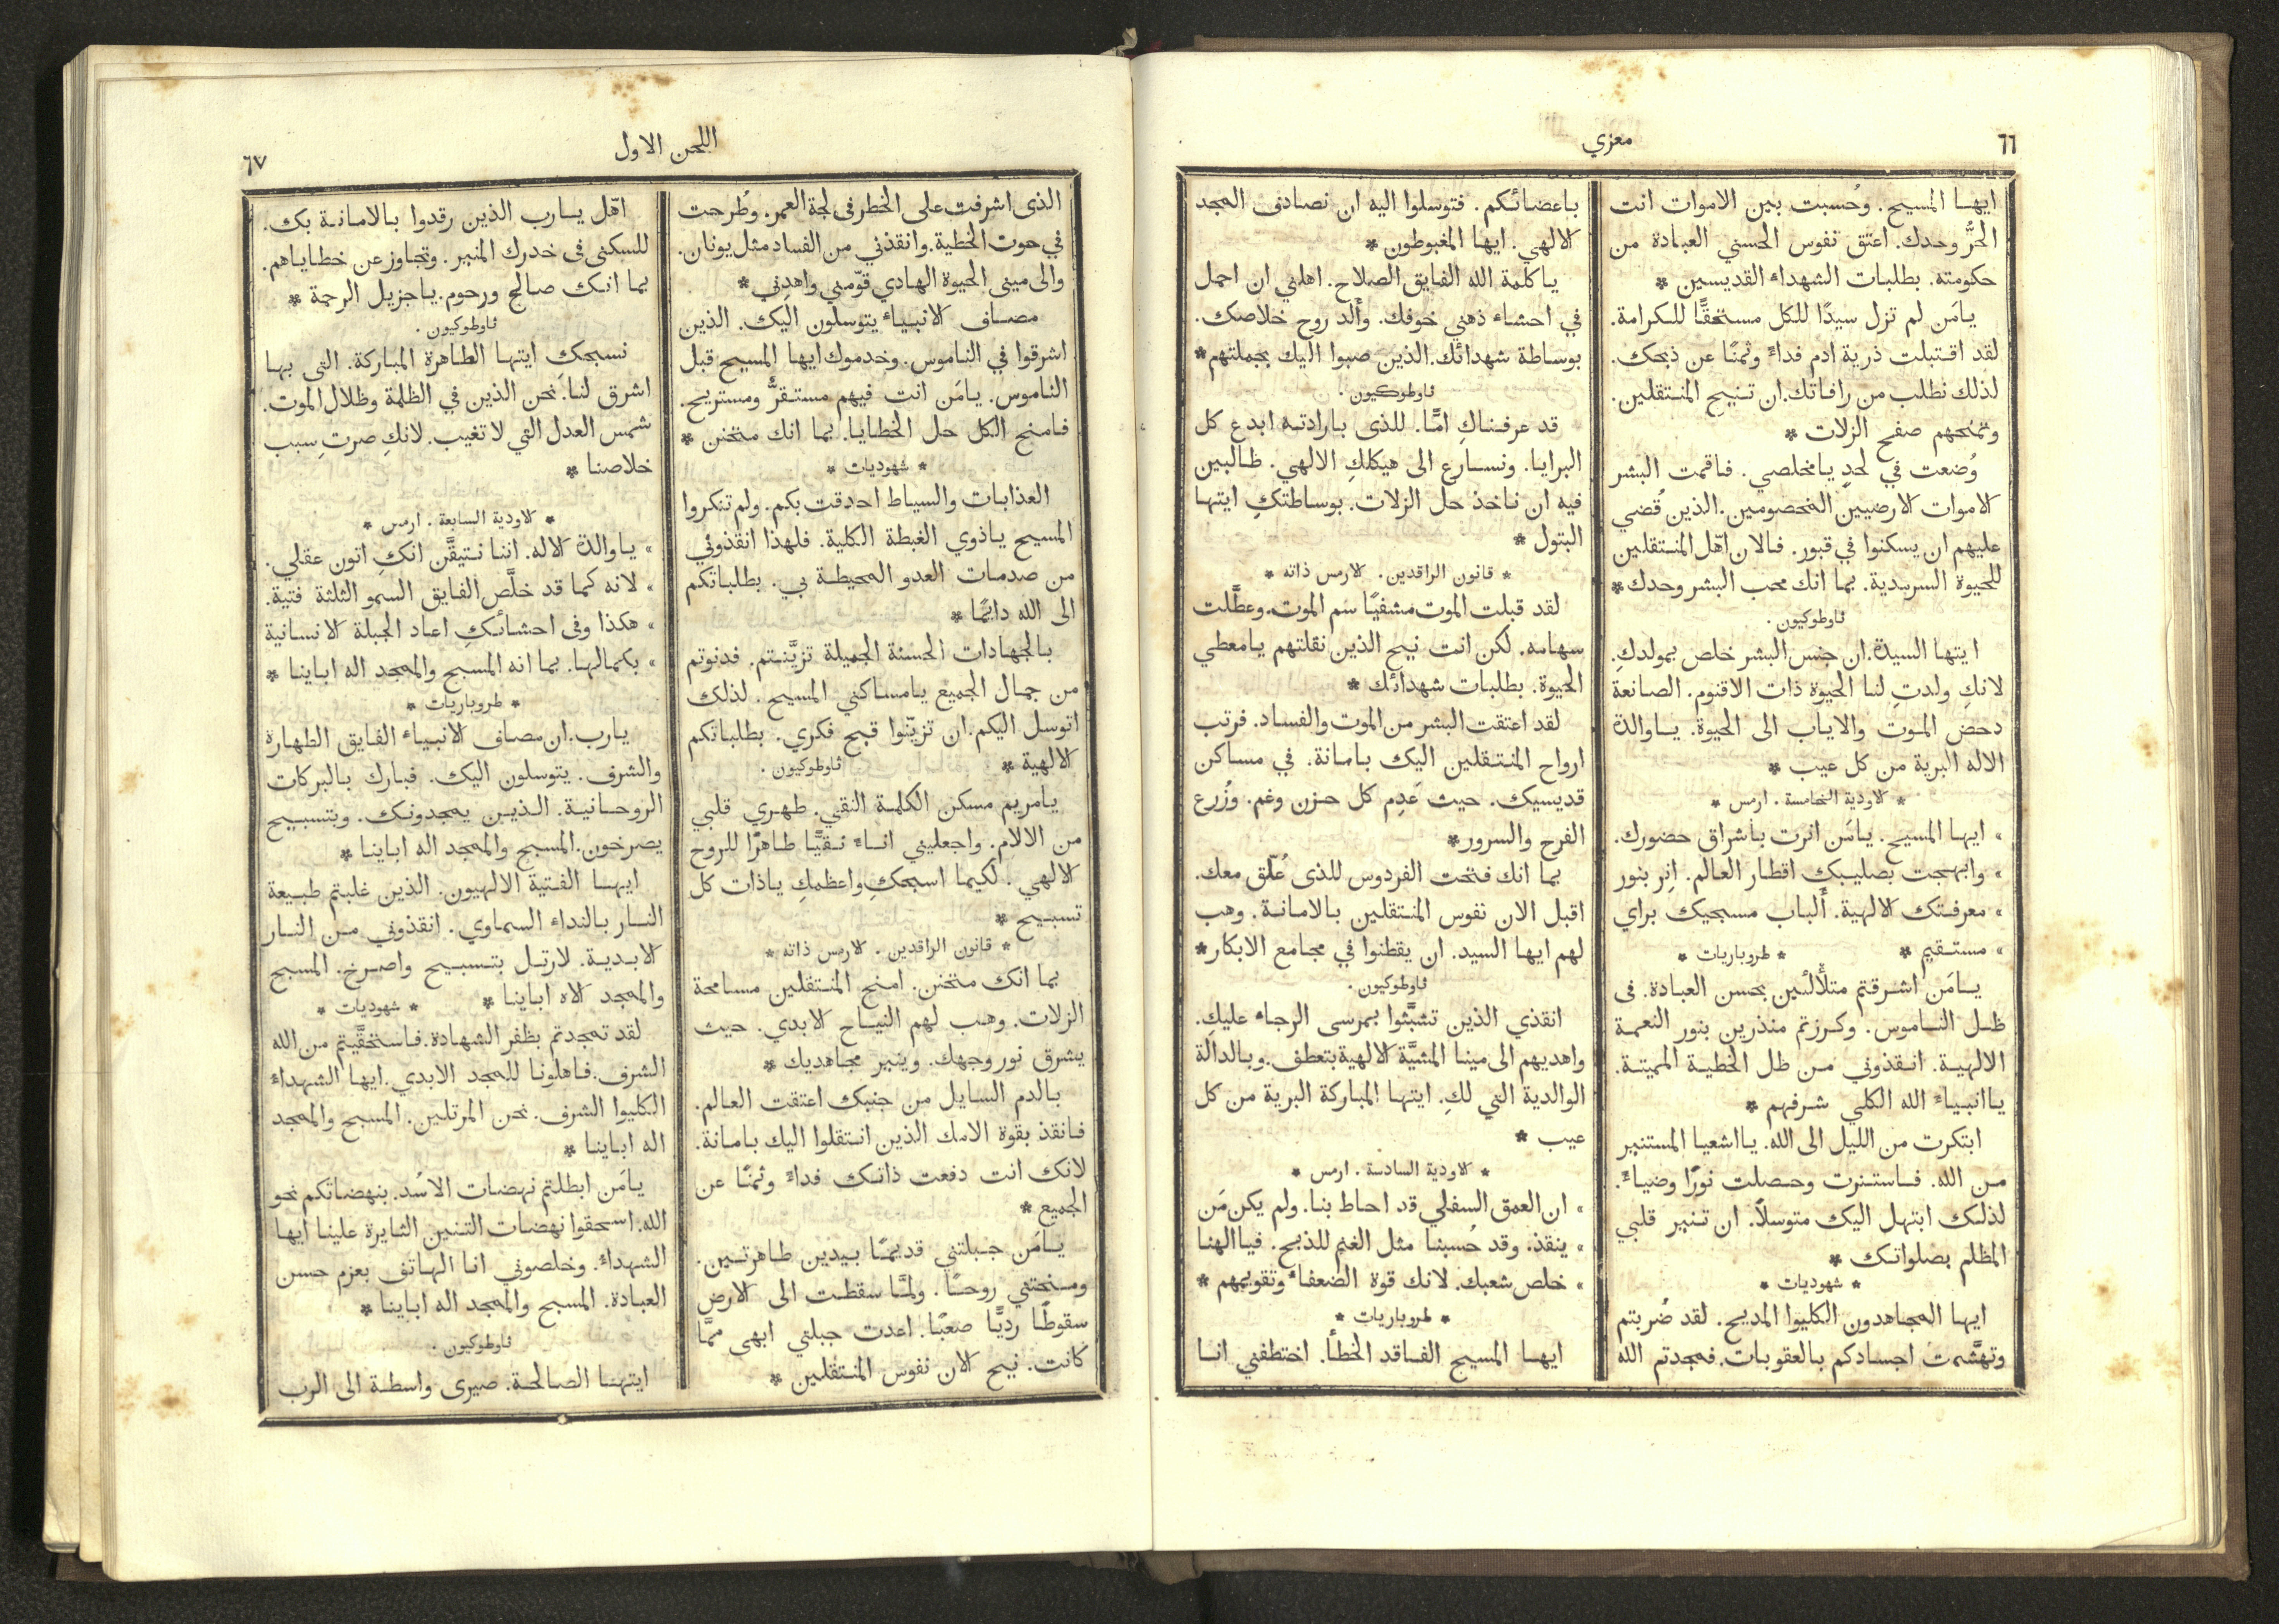 ٦٦
معزي
ايها المسيح. وحُسبت بين الاموات انت
الحرُّ وحدك. اعتق نفوس الحسني العبادة من
حكومته. بطلبات الشهداء القديسين *
يامَن لم تزل سيدًا للكل مستحقًّا للكرامة.
لقد اقتبلت ذرية ادم فداءً وثمنًا عن ذبحك.
لذلك نطلب من رافاتك. ان تنيح المنتقلين.
وتمنحهم صفح الزلات *
وُضعت في لحدٍ يامخلصي. فاقمت البشر
الاموات الارضيين المخصومين. الذين قُضي
عليهم ان يسكنوا في قبور. فالان اهّل المنتقلين
للحيوة السرمدية. بما انك محب البشر وحدك *
ثاوطوكيون.
ايتها السيدة. ان جنس البشر خلص بمولدكِ.
لانكِ ولدتِ لنا الحيوة ذات الاقنوم. الصانعة
دحض الموت والاياب الى الحيوة. ياوالدة
الاله البرية من كل عيب *
* الاودية الخامسة. ارمس *
» ايها المسيح. يامَن انرت باشراق حضورك.
» وابهجت بصليبك اقطار العالم. انِر بنور
» معرفتك الالهية. ألباب مسبحيك براي
» مستقيم * * طروباريات *
يامَن اشرقتم متلألئين بحسن العبادة. فى
ظل الناموس. وكرزتم منذرين بنور النعمة
الالهية. انقذوني من ظل الخطية المميتة.
ياانبياء الله الكلي شرفهم *
ابتكرت من الليل الى الله. يااشعيا المستنير
من الله. فاستنرت وحصلت نورًا وضياءً.
لذلك ابتهل اليك متوسلاً. ان تنير قلبي
المظلم بصلواتك *
* شهوديات *
ايها المجاهدون الكليوا المديح. لقد ضُربتم
وتهشَّمت اجسادكم بالعقوبات. فمجدتم الله
باعضائكم. فتوسلوا اليه ان نصادف المجد
الالهي. ايها المغبوطون *
ياكلمة الله الفايق الصلاح. اهلني ان احمل
في احشاء ذهني خوفك. وألد روح خلاصك.
بوساطة شهدائك. الذين صبوا اليك بجملتهم *
ثاوطوكيون.
قد عرفناكِ امًّا. للذى بارادته ابدع كل
البرايا. ونسارع الى هيكلكِ الالهي. طالبين
فيه ان ناخذ حل الزلات. بوساطتكِ ايتها
البتول *
* قانون الراقدين. الارمس ذاته *
لقد قبلت الموت مشفيًا سم الموت. وعطَّلت
سهامه. لكن انت نيح الذين نقلتهم يامعطي
الحيوة. بطلبات شهدائك *
لقد اعتقت البشر من الموت والفساد. فرتب
ارواح المنتقلين اليك بامانة. في مساكن
قديسيك. حيث عَدِم كل حزن وغم. وزُرع
الفرح والسرور *
بما انك فتحت الفردوس للذى عُلّق معك.
اقبل الان نفوس المنتقلين بالامانة. وهب
لهم ايها السيد. ان يقطنوا في مجامع الابكار *
ثاوطوكيون.
انقذي الذين تشبَّثوا بمرسى الرجاء عليكِ.
واهديهم الى مينا المشيَّة الالهية بتعطف. وبالدالة
الوالدية التي لكِ. ايتها المباركة البرية من كل
عيب *
* الاودية السادسة. ارمس *
» ان العمق السفلي قد احاط بنا. ولم يكن مَن
» ينقذ. وقد حُسبنا مثل الغنم للذبح. فياالهنا
» خلص شعبك. لانك قوة الضعفاء وتقويمهم *
* طروباريات *
ايها المسيح الفاقد الخطأ. اختطفني انا
اللحن الاول
٦٧
الذى اشرفت على الخطر فى لجة العمر. وطُرحت
في حوت الخطية. وانقذني من الفساد مثل يونان.
والى مينى الحيوة الهادي قوّمني واهدِني *
مصاف الانبياء يتوسلون اليك. الذين
اشرقوا في الناموس. وخدموك ايها المسيح قبل
الناموس. يامَن انت فيهم مستقرٌّ ومستريح.
فامنح الكل حل الخطايا. بما انك متحنن *
* شهوديات *
العذابات والسياط احدقت بكم. ولم تنكروا
المسيح ياذوي الغبطة الكلية. فلهذا انقذوني
من صدمات العدو المحيطة بي. بطلباتكم
الى الله دايمًا *
بالجهادات الحسنة الجميلة تزيَّنتم. فدنوتم
من جمال الجميع يامساكني المسيح. لذلك
اتوسل اليكم. ان تزيّنوا قبح فكري. بطلباتكم
الالهية * ثاوطوكيون.
يامريم مسكن الكلمة النقي. طهري قلبي
من الالام. واجعليني اناءً نقيًّا طاهرًا للروح
الالهي. لكيما اسبحكِ واعظمكِ ياذات كل
تسبيح *
* قانون الراقدين. الارمس ذاته *
بما انك متحنن. امنح المنتقلين مسامحة
الزلات. وهب لهم النياح الابدي. حيث
يشرق نور وجهك. وينير مجاهديك *
بالدم السايل من جنبك اعتقت العالم.
فانقذ بقوة الامك الذين انتقلوا اليك بامانة.
لانك انت دفعت ذاتك فداءً وثمنًا عن
الجميع *
يامَن جبلتني قديمًا بيدين طاهرتين.
ومنحتني روحًا. ولمَّا سقطت الى الارض
سقوطًا رديًّا صعبًا. اعدت جبلتي ابهى ممَّا
كانت. نيح الان نفوس المنتقلين *
اهّل يارب الذين رقدوا بالامانة بك.
للسكنى فى خدرك المنير. وتجاوز عن خطاياهم.
بما انك صالح ورحوم. ياجزيل الرحمة *
ثاوطوكيون.
نسبحكِ ايتها الطاهرة المباركة. التي بها
اشرق لنا. نحن الذين في الظلمة وظلال الموت.
شمس العدل التي لا تغيب. لانكِ صرتِ سبب
خلاصنا *
* الاودية السابعة. ارمس *
» ياوالدة الاله. اننا نتيقَّن انكِ اتون عقلي.
» لانه كما قد خلَّص الفايق السمو الثلثة فتية.
» هكذا وفى احشائكِ اعاد الجبلة الانسانية
» بكمالها. بما انه المسبح والممجد اله اباينا *
* طروباريات *
يارب. ان مصاف الانبياء الفايق الطهارة
والشرف. يتوسلون اليك. فبارك بالبركات
الروحانية. الذين يمجدونك. وبتسبيح
يصرخون. المسبح والممجد اله اباينا *
ايها الفتية الالهيون. الذين غلبتم طبيعة
النار بالنداء السماوي. انقذوني من النار
الابدية. لارتل بتسبيح واصرخ. المسبح
والممجد الاه اباينا * * شهوديات *
لقد تمجدتم بظفر الشهادة. فاستحقَّيتم من الله
الشرف. فاهلونا للمجد الابدي. ايها الشهداء
الكليوا الشرف. نحن المرتلين. المسبح والممجد
اله اباينا *
يامَن ابطلتم نهضات الاسُد. بنهضاتكم نحو
الله. اسحقوا نهضات التنين الثايرة علينا ايها
الشهداء. وخلصوني انا الهاتف بعزم حسن
العبادة. المسبح والممجد اله اباينا *
ثاوطوكيون.
ايتهنا الصالحة. صيرى واسطة الى الرب